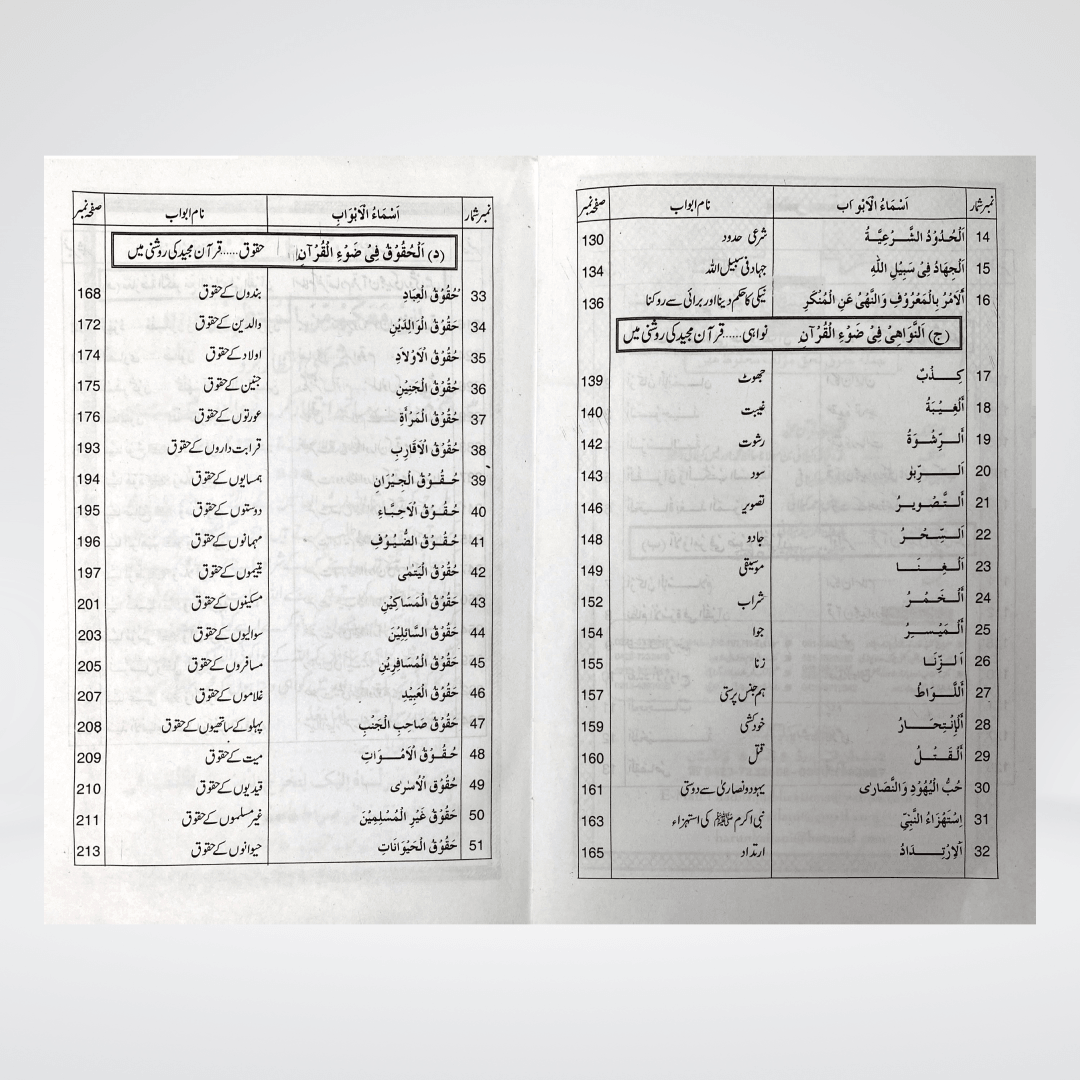 نمبر شمار اَسْمَاءُ الْاَبْوَابِ نام ابواب صفحہ نمبر
14 اَلْحُدُوْدُ الشَّرْعِيَّةُ شرعی حدود 130
15 اَلْجِهَادُ فِيْ سَبِيْلِ اللّٰهِ جہاد فی سبیل اللہ 134
16 اَلْاَمْرُ بِالْمَعْرُوْفِ وَالنَّهْيُ عَنِ الْمُنْكَرِ نیکی کا حکم دینا اور برائی سے روکنا 136
(ج) اَلنَّوَاهِيْ فِيْ ضَوْءِ الْقُرْآنِ نواہی......قرآن مجید کی روشنی میں
17 كِذْبٌ جھوٹ 139
18 اَلْغِيْبَةُ غیبت 140
19 اَلرِّشْوَةُ رشوت 142
20 اَلرِّبٰو سود 143
21 اَلتَّصْوِيْرُ تصویر 146
22 اَلسِّحْرُ جادو 148
23 اَلْغِنَا موسیقی 149
24 اَلْخَمْرُ شراب 152
25 اَلْمَيْسِرُ جوا 154
26 اَلزِّنَا زنا 155
27 اَللَّوَاطُ ہم جنس پرستی 157
28 اَلْاِنْتِحَارُ خودکشی 159
29 اَلْقَتْلُ قتل 160
30 حُبُّ الْيَهُوْدِ وَالنَّصَارٰى یہود و نصاریٰ سے دوستی 161
31 اِسْتِهْزَاءُ النَّبِيِّ نبی اکرم ﷺ کی استہزاء 163
32 اَلْاِرْتِدَادُ ارتداد 165
نمبر شمار اَسْمَاءُ الْاَبْوَابِ نام ابواب صفحہ نمبر
(د) اَلْحُقُوْقُ فِيْ ضَوْءِ الْقُرْآنِ حقوق......قرآن مجید کی روشنی میں
33 حُقُوْقُ الْعِبَادِ بندوں کے حقوق 168
34 حَقُوْقُ الْوَالِدَيْنِ والدین کے حقوق 172
35 حُقُوْقُ الْاَوْلَادِ اولاد کے حقوق 174
36 حُقُوْقُ الْجَنِيْنِ جنین کے حقوق 175
37 حُقُوْقُ الْمَرْأَةِ عورتوں کے حقوق 176
38 حُقُوْقُ الْاَقَارِبِ قرابت داروں کے حقوق 193
39 حُقُوْقُ الْجِيْرَانِ ہمسایوں کے حقوق 194
40 حُقُوْقُ الْاَحِبَّاءِ دوستوں کے حقوق 195
41 حُقُوْقُ الضُّيُوْفِ مہمانوں کے حقوق 196
42 حُقُوْقُ الْيَتٰمٰى یتیموں کے حقوق 197
43 حَقُوْقُ الْمَسَاكِيْنِ مسکینوں کے حقوق 201
44 حَقُوْقُ السَّائِلِيْنَ سوالیوں کے حقوق 203
45 حَقُوْقُ الْمُسَافِرِيْنَ مسافروں کے حقوق 205
46 حَقُوْقُ الْعَبِيْدِ غلاموں کے حقوق 207
47 حَقُوْقُ صَاحِبِ الْجَنْبِ پہلو کے ساتھیوں کے حقوق 208
48 حُقُوْقُ الْاَمْوَاتِ میت کے حقوق 209
49 حُقُوْقُ الْاُسْرٰى قیدیوں کے حقوق 210
50 حُقُوْقُ غَيْرِ الْمُسْلِمِيْنَ غیر مسلموں کے حقوق 211
51 حَقُوْقُ الْحَيْوَانَاتِ حیوانوں کے حقوق 213